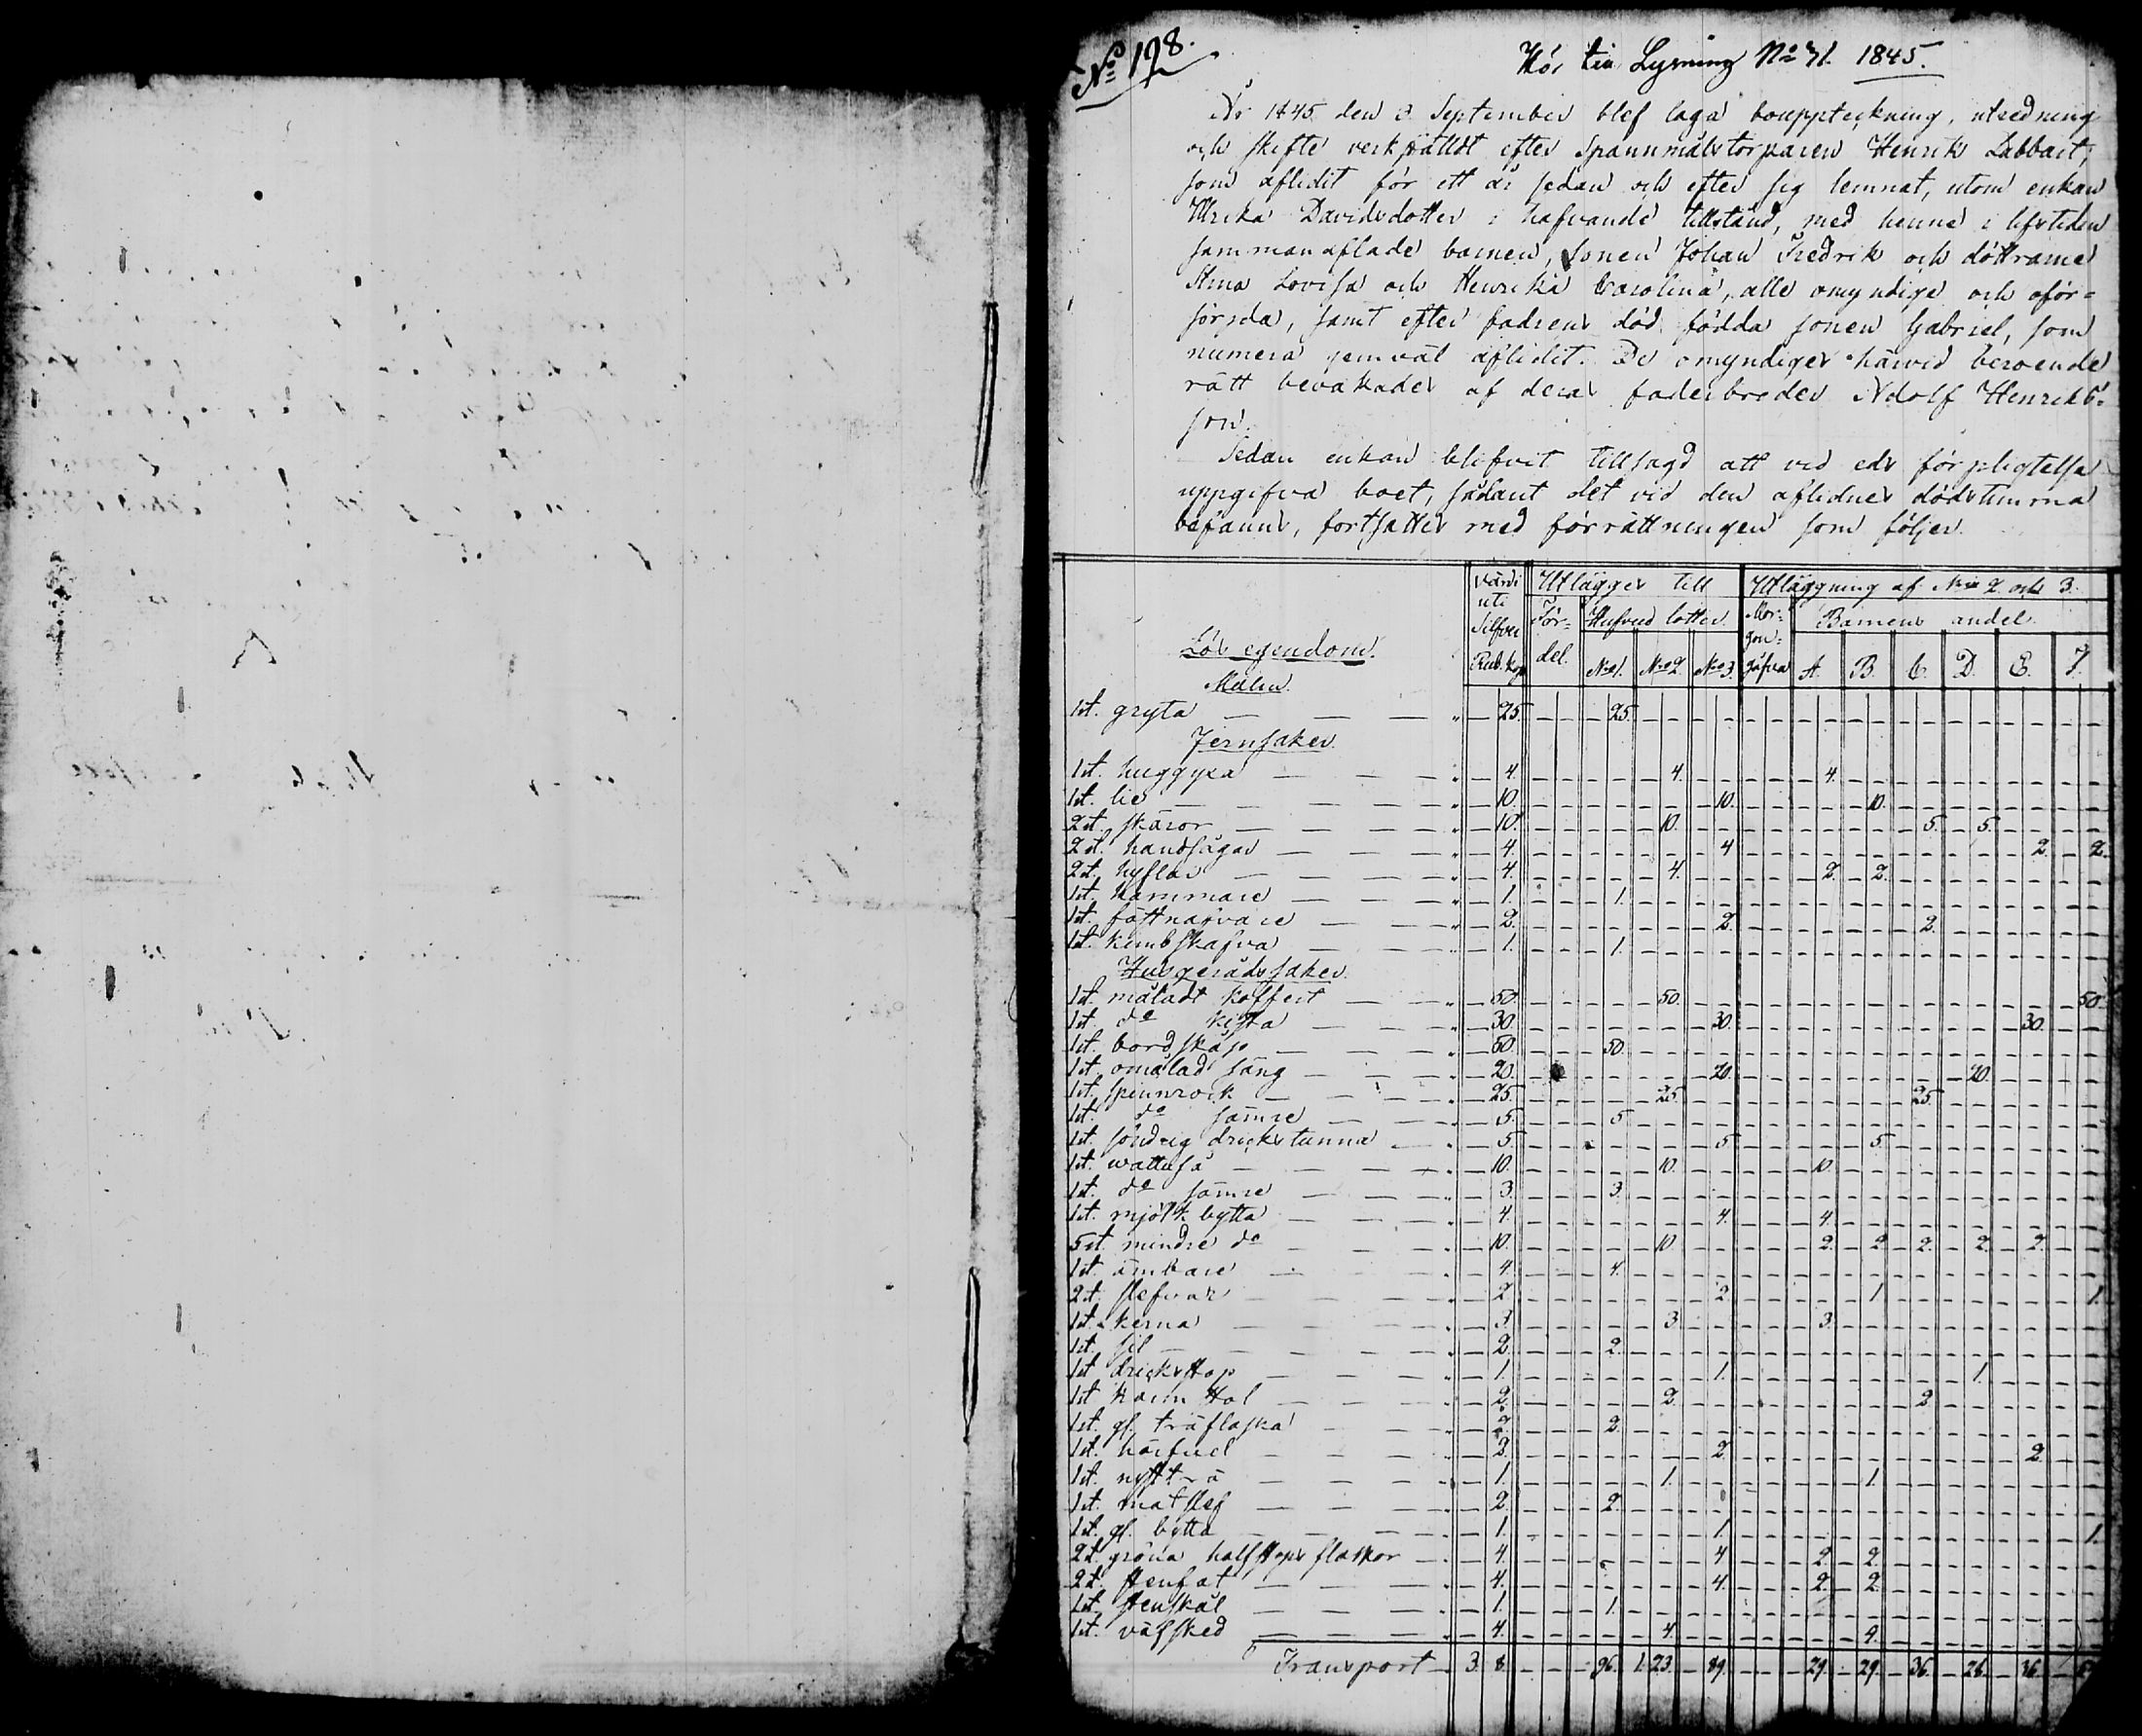 No 198.
Hör till Lysning No 31. 1845.
År 1845 den 3 September blef laga bouppteckning, utredning
och skifte verkstäldt efter Spannmålstorparen Henrik Labbart,
som aflidit för ett år sedan och efter sig lemnat, utom enkan
Ulrika Davidsdotter i hafvande tillstånd, med henne i lifstiden
sammanaflade barnen, sonen Johan Fredrik och döttrarne
Stina Lovisa och Henrika Carolina, alle omyndige och oför-
sörjda, samt efter fadrens död födda sonen Gabriel, som
numera jemväl aflidit. De omyndiges härvid beroende
rätt bevakades af deras faderbroder Adolf Henriks-
son.
Sedan enkan blifvit tillsagd att vid eds förpligtelse
uppgifva boet, sådant det vid den aflidnes dödstimma
befanns, fortsattes med förrättningen som följer.
Lös egendom.
Värde uti Silfver Rub. kop
Utlägges till
För-del.
Hufvud lotter.
No 1. No 2. No 3.
Utläggning af No 2 och 3.
Mor-gon-gåfva
Barnens andel.
A. B. C. D. E. F.
Malm.
1 st. gryta — 25. 25.
Jernsaker.
1 st. huggyxa — 4. 4. 4.
1 st. lie — 10. 10. 10.
2 st. skäror — 10. 10. 5. 5.
2 st. handsågar — 4. 4 2. 2.
2 st. hyflar — 4. 4. 2. 2.
1 st. hammare — 1. 1.
1 st. fästnafvare — 2. 2. 2.
1 st. kimbskafva — 1. 1.
Husgerådssaker.
1 st. måladt koffert — 50. 50. 50.
1 st. do kista — 30. 30. 30.
1 st. bordskåp — 50. 50.
1 st. omålad säng — 20. 20. 20.
1 st. spinnrock — 25. 25. 25.
1 st. do sämre — 5. 5
1 st. söndrig dricks tunna — 5. 5 5.
1 st. vattuså — 10. 10. 10.
1 st. do sämre — 3. 3.
1 st. mjölk bytta — 4. 4. 4.
5 st. mindre do — 10. 10 2. 2 2. 2. 2.
1 st. ämbare — 4. 4.
2 st. slefvar — 2. 2 1 1.
1 st. kerna — 3. 3. 3.
1 st. sil — 2. 2.
1 st dricks stop — 1. 1. 1.
1 st karm stol — 2. 2. 2
1 st. gl. träflaska — 2. 2.
1 st. härfvel — 2. 2. 2.
1 st. nysträ — 1. 1. 1.
1 st. matslef — 2. 2.
1 st. gl. bytta — 1. 1. 1.
2 st. gröna half stops flaskor — 4. 4 2. 2.
2 st. stenfat — 4. 4. 2. 2.
1 st. stenskål — 1. 1.
1 st. väfsked — 4. 4. 4.
Transport 3. 8. 96. 1. 23. 89. 29. 29. 36. 28. 36.